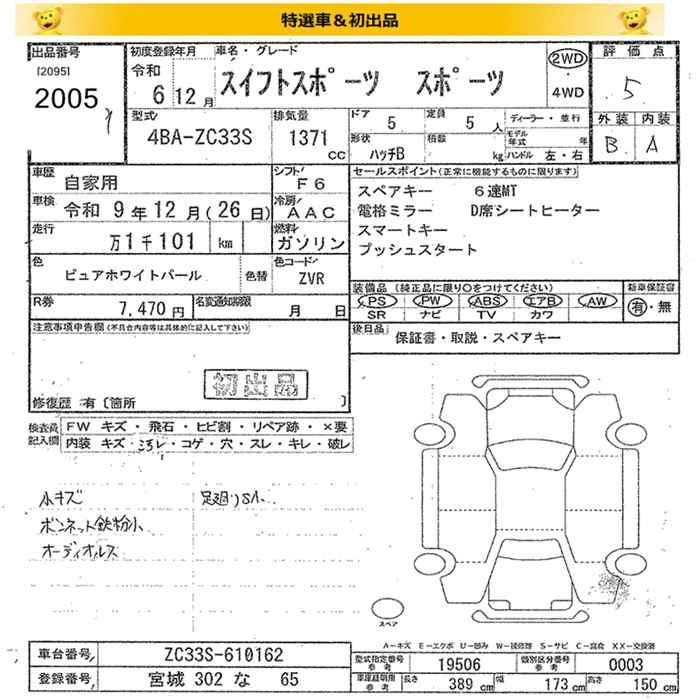 特選車＆初出品
出品番号
[2095]
2005
初度登録年月
令和
6 12月
車名・グレード
スイフトスポーツ スポーツ
2WD
・
4WD
評価点
5
外装 内装
B A
型式
4BA-ZC33S
排気量
1371
CC
ドア 5
定員 5 人
ディーラー・並行
形状
ハッチB
積載
kg
モデル年式 年
ハンドル 左・右
車歴 自家用
シフト F6
車検 令和 9年12月(26日)
冷房 AAC
走行 万1千101 km
燃料 ガソリン
色 ピュアホワイトパール
色替
色コード ZVR
R券 7,470円
名変通知期限 月 日
セールスポイント(正常に機能するものに限ります)
スペアキー 6速MT
電格ミラー D席シートヒーター
スマートキー
プッシュスタート
装備品 (純正品に限り○をつけてください)
PS PW ABS エアB AW
SR ナビ TV カワ
新車保証書
有・無
後日品
保証書・取説・スペアキー
注意事項申告欄(不具合内容等は具体的に記入して下さい)
初出品
修復歴 有〔箇所 〕
検査員記入欄
FW キズ・飛石・ヒビ割・リペア跡・×要
内装 キズ・ヨゴレ・コゲ・穴・スレ・キレ・破レ
小キズ 足廻りSA.
ボンネット鉄粉小
オーディオルス
スペア
A－キズ E－エクボ U－凹み W－波修理 S－サビ C－腐食 XX－交換済
車台番号 ZC33S-610162
登録番号 宮城 302 な 65
型式指定番号参考 19506
類別区分番号参考 0003
車庫証明用参考 長さ 389 cm 幅 173 cm 高さ 150 cm